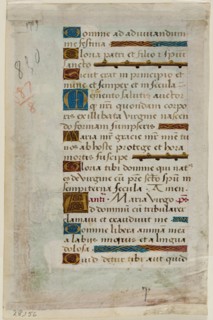 Domine ad adiuvandum
me festina
Gloria patri et filio et spiri
sancto
Sicut erat in principio et
nunc et semper et in secula
Memento salutis auctor
q nri quondam corpo
ris ex illibata virgine nascen
do formam sumpseris
Maria mr gracie mr mie tu
nos ab hoste protege et hora
mortis suscipe
Gloria tibi domine qui nat
es de virgine cū pre et sctō spū in
sempiterna secula Amen
anti Maria virgo ps
Ad dominum cū tribularer
clamavi et exaudivit me
Domine libera animā mea
a labiis iniquis et a lingua
dolosa
Quid detur tibi aut quid